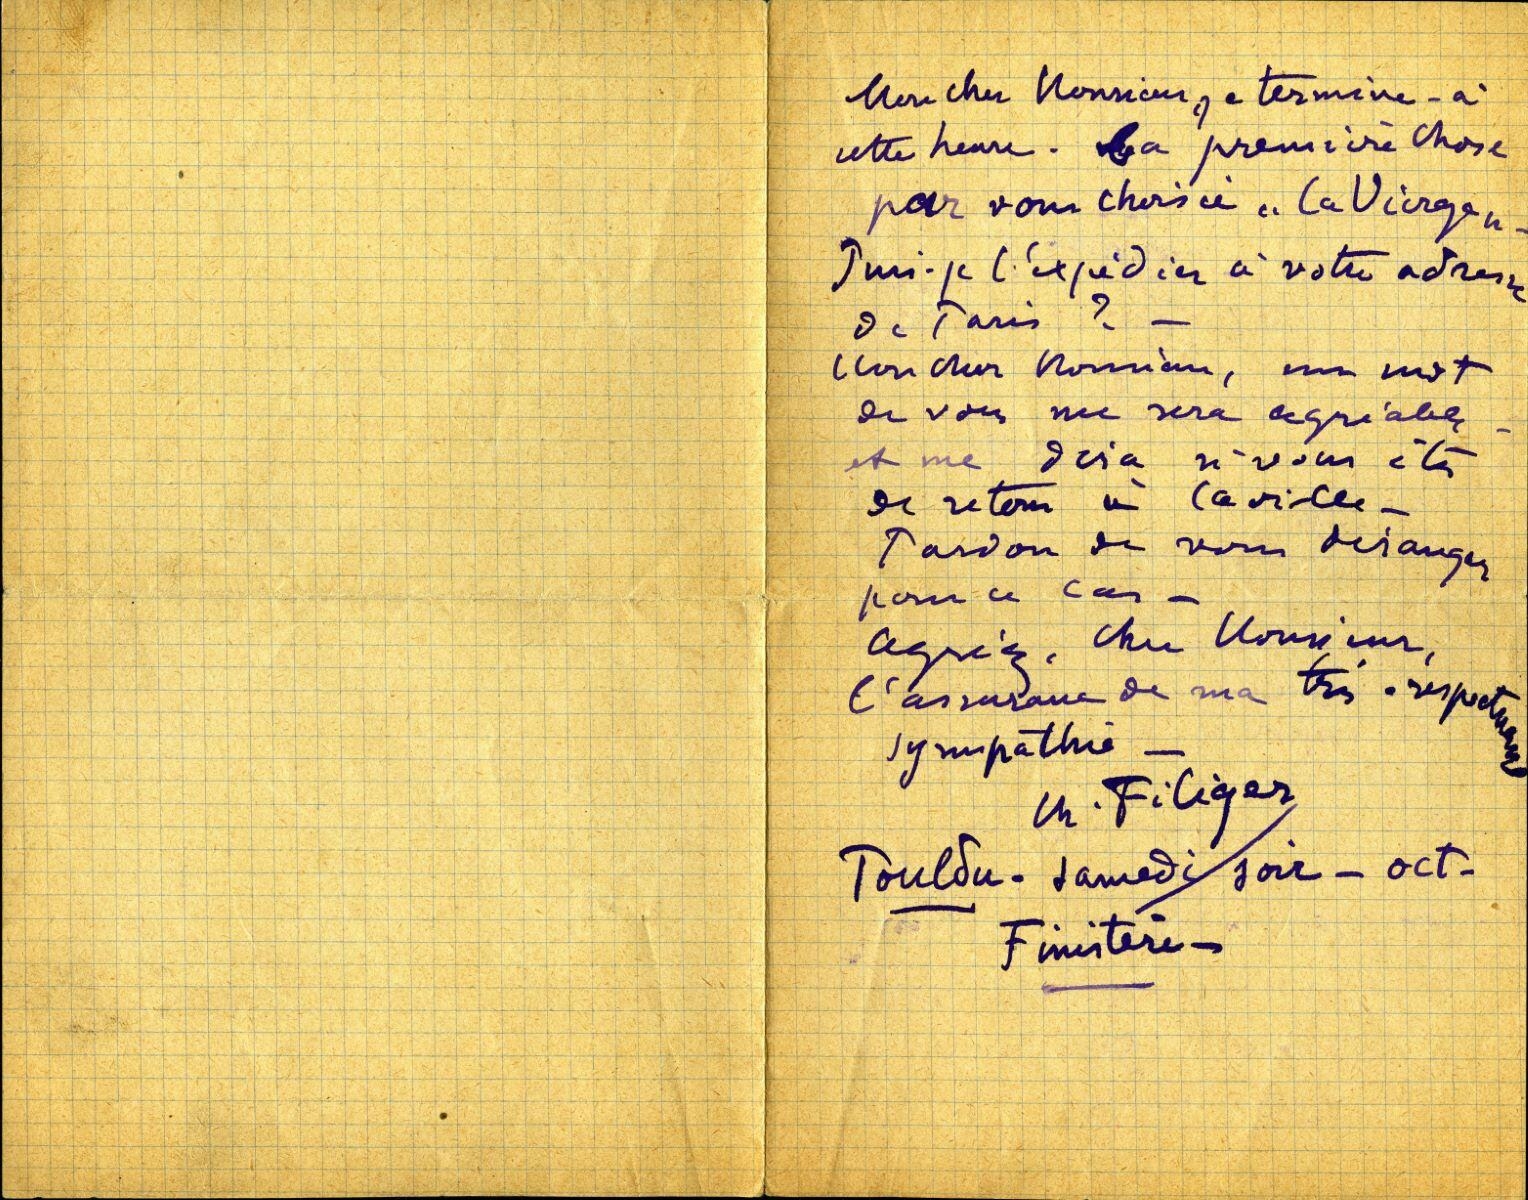 Mon cher Monsieur, je termine - à
cette heure - La première chose
par vous choisie " La Vierge " -
Puis-je l'expédier à votre adresse
de Paris ? -
Mon cher Monsieur, un mot
de vous me sera agréable, -
et me dira si vous êtes
de retour à la ville -
Pardon de vous déranger
pour ce cas -
Agréez, cher Monsieur,
l'assurance de ma très - respectueuse
sympathie -
Ch. Filiger
Pouldu - samedi soir - oct -
Finistère -